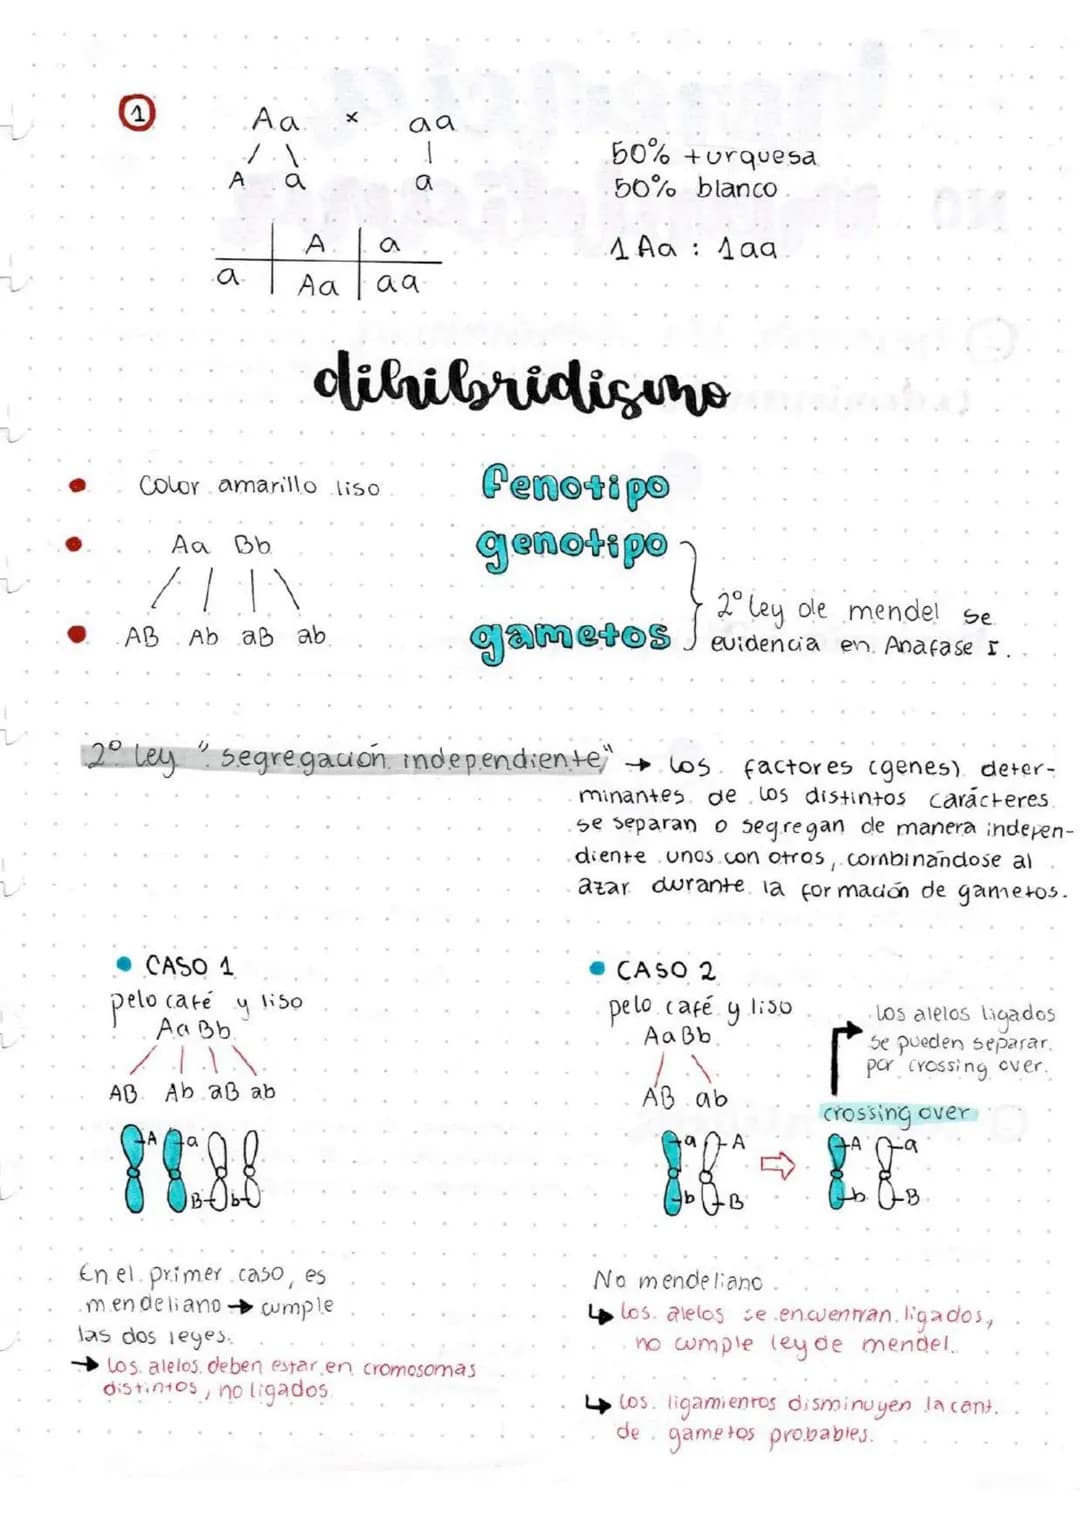 1
Aa × aa
A a a
50% turquesa
50% blanco
1 Aa : 1 aa
A a
a Aa aa
dihibridismo
Color amarillo liso
fenotipo
Aa Bb
genotipo
AB Ab aB ab
gametos
2º ley de mendel se
evidencia en Anafase I.
2º ley "segregación independiente" → los factores (genes) deter-
minantes de los distintos carácteres
se separan o segregan de manera indepen-
diente unos con otros, combinándose al
azar durante la formación de gametos.
CASO 1
pelo café y liso
Aa Bb
AB Ab aB ab
A a
B b
En el primer caso, es
mendeliano → cumple
las dos leyes.
→ Los alelos deben estar en cromosomas
distintos, no ligados.
CASO 2
pelo café y liso
AaBb
AB ab
los alelos ligados
se pueden separar
por crossing over.
crossing over
a A A a
b B b B
No mendeliano
↳ los alelos se encuentran ligados,
no cumple ley de mendel.
↳ los ligamientos disminuyen la cant.
de gametos probables.